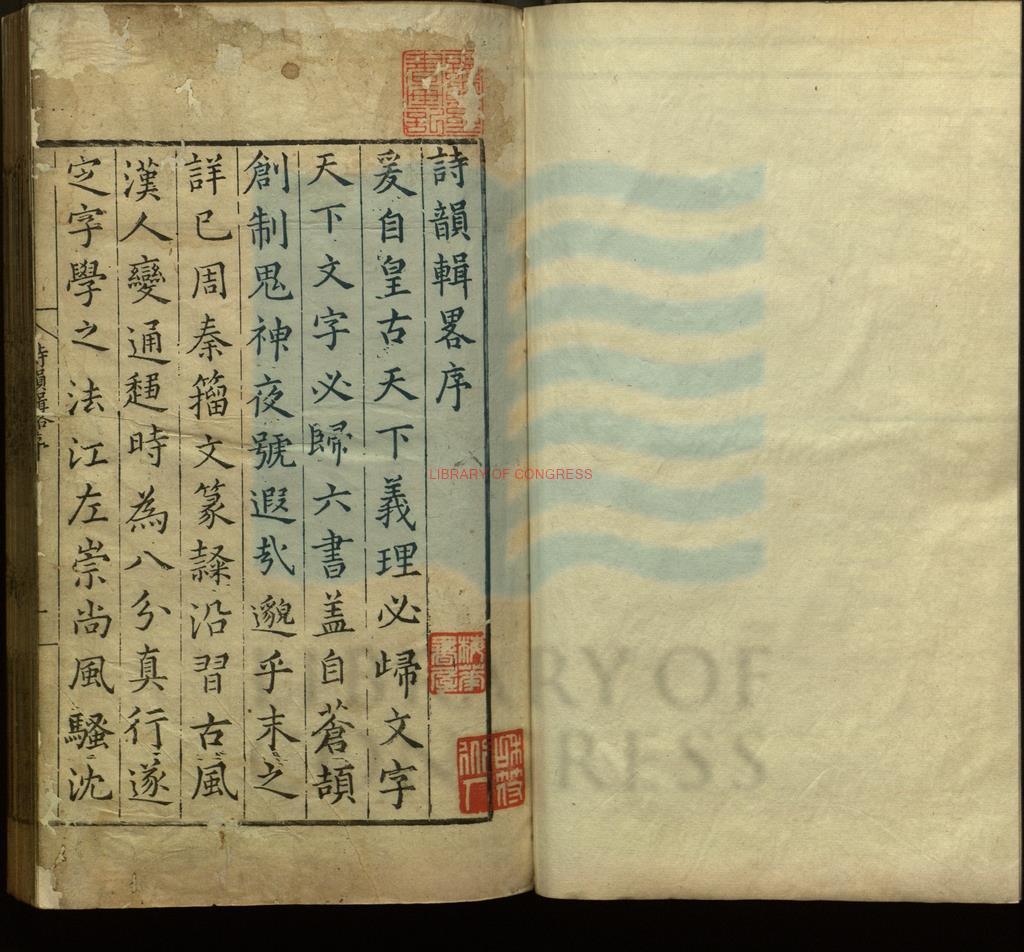 詩韻輯畧序
爰自皇古天下義理必歸文字
天下文字必歸六書蓋自蒼頡
創制鬼神夜號遐哉邈乎末之
詳已周秦籀文篆隸沿習古風
漢人變通趨時為八分真行遂
㝎字學之法江左崇尚風騷沈
詩韻輯畧序
梅華書屋
LIBRARY OF CONGRESS
LIBRARY OF CONGRESS